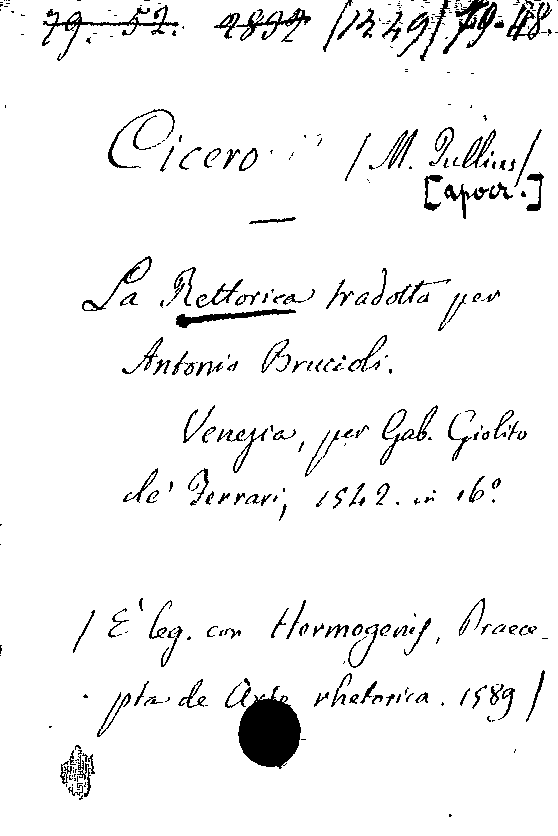 79. 52. 2832 /1249/ 79-48.
Cicero / M. Tullius/
[apocr.]
La Rettorica tradotta per
Antonio Brucioli.
Venezia, per Gab. Giolito
de' Ferrari, 1542. in 16º
/ E' leg. con Hermogenis, Praece-
pta de Arte rhetorica. 1589 /